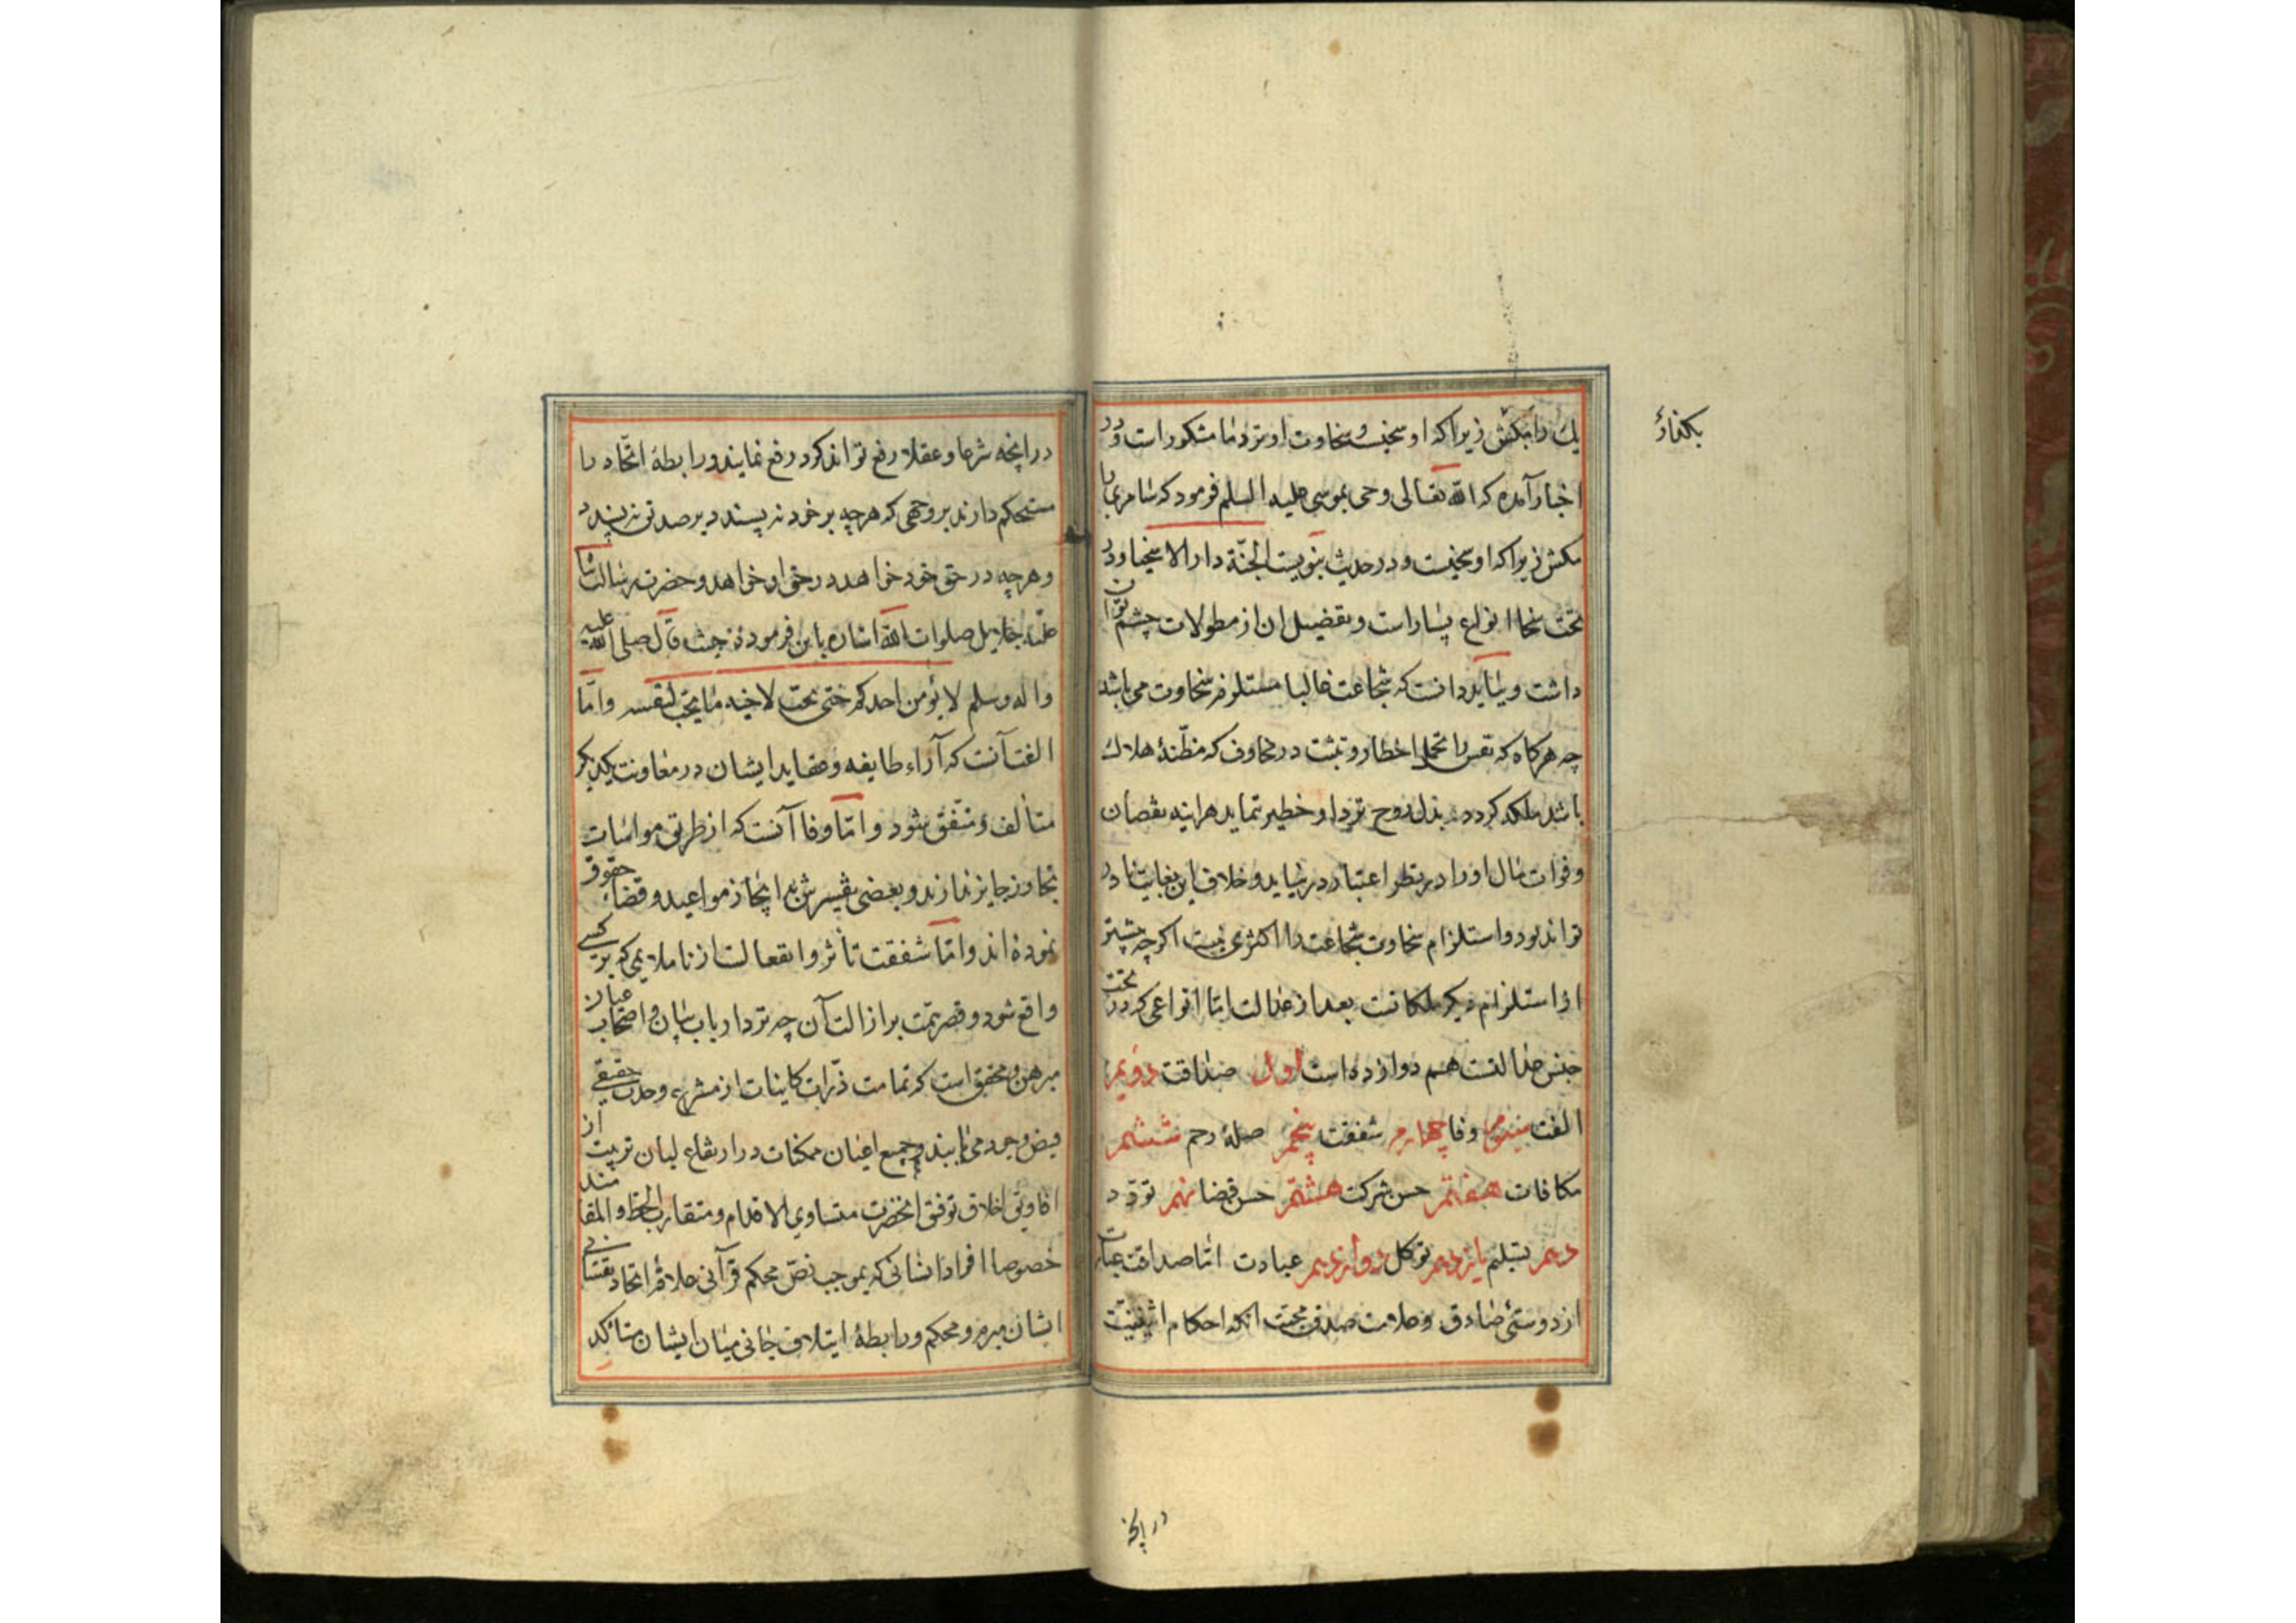 بکذار
یك را مکش زیرا که او سخیست و سخاوت او نزد ما مشکور است و در
اخبار آمده که الله تعالی وحی بموسی علیه السلم فرمود که سامری را
مکش زیرا که او سخیست و در حدیث نبویست الجنّة دار الاسخیا و در
تحت سخا انواع بسیار است و تفضیل ان از مطولات چشم توان
داشت و بباید دانست که شجاعت غالبا مستلزم سخاوت می باشد
چه هرکاه که نفس را تحمل اخطار و تثبت در مخاوف که مظنّهٔ هلاك
باشد ملکه کردد و بذل روح نزد او خطیر ننماید هراینه نقصان
و فوات مال او را در نظر اعتبار در نیاید و خلاف این بغایت نادر
تواند بود و استلزام سخاوت شجاعت را اکثری نیست اکرچه بیشتر
از استلزام دیکر ملکاتست بعد از عدالت اما انواعی که در تحت
جنس عدالتست هم دوازده است اول صداقت دویم
الفت سیوم وفا چهارم شفقت پنجم صلهٔ رحم ششم
مکافات هفتم حسن شرکت هشتم حسن قضا نهم تودد
دهم تسلیم یازدهم توکل دوازدهم عبادت امّا صداقت عبارت
از دوستی صادق و علامت صدق محبت انکه احکام اثنینیّت
در انچه
در انچه شرعا و عقلا رفع تواند کرد رفع نمایند و رابطهٔ اتّحاد را
مستحکم دارند بر وجهی که هرچه بر خود نه پسندد بر صدیق نه پسندد
و هرچه در حق خود خواهد در حق او خواهد و حضرت رسالت
علیه جلایل صلوات الله اشاره باین فرموده حیث قال صلی الله علیه
و اله و سلم لا یؤمن احدکم حتی یحبّ لاخیه ما یحبّ لنفسه و امّا
الفت آنست که آراء طایفه و عقاید ایشان در معاونت یکدیکر
متألف و متّفق شود و امّا وفا آنست که از طریق مواسات
تجاوز جایز ندارند و بعضی تفسیرش به انجاز مواعید و قضاء حقوق
نموده اند و امّا شفقت تأثر و انفعالست از ناملایمی که بر کسی
واقع شود و قصر همّت بر ازالت آن چه نزد ارباب بیان و اصحاب عیان
مبرهن و محقق است که تمامت ذرّات کاینات از مشرب وحدت حقیقی
فیض وجود می یابند و جمیع اعیان ممکنات در ارتضاع لبان تربیت از
افاویق اخلاق توفیق انحضرت متساوی الاقدام و متقارب الحظ و المقا مند
خصوصا افراد انسانی که بموجب نصّ محکم قرآنی علاقهٔ اتحاد نفسانی
ایشان مبرم و محکم و رابطهٔ ایتلاف جانی میان ایشان متأکد